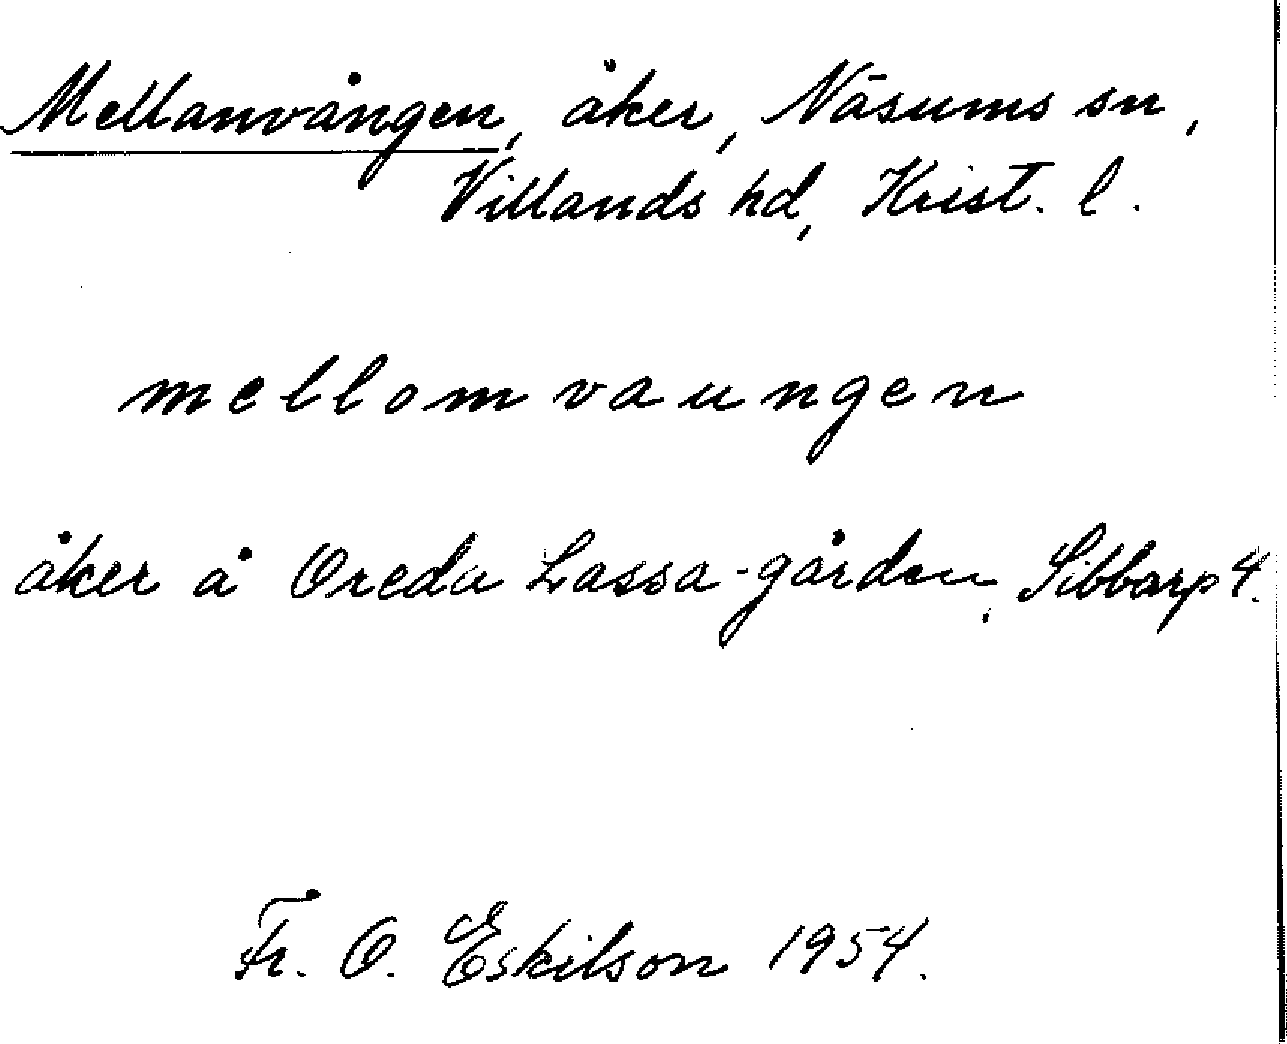 Mellanvången, åker, Näsums sn,
Villands hd, Krist. l.
mellomvaungen
åker å Oreda Lassa-gården, Sibbarp 4.
Fr. O. Eskilson 1954.